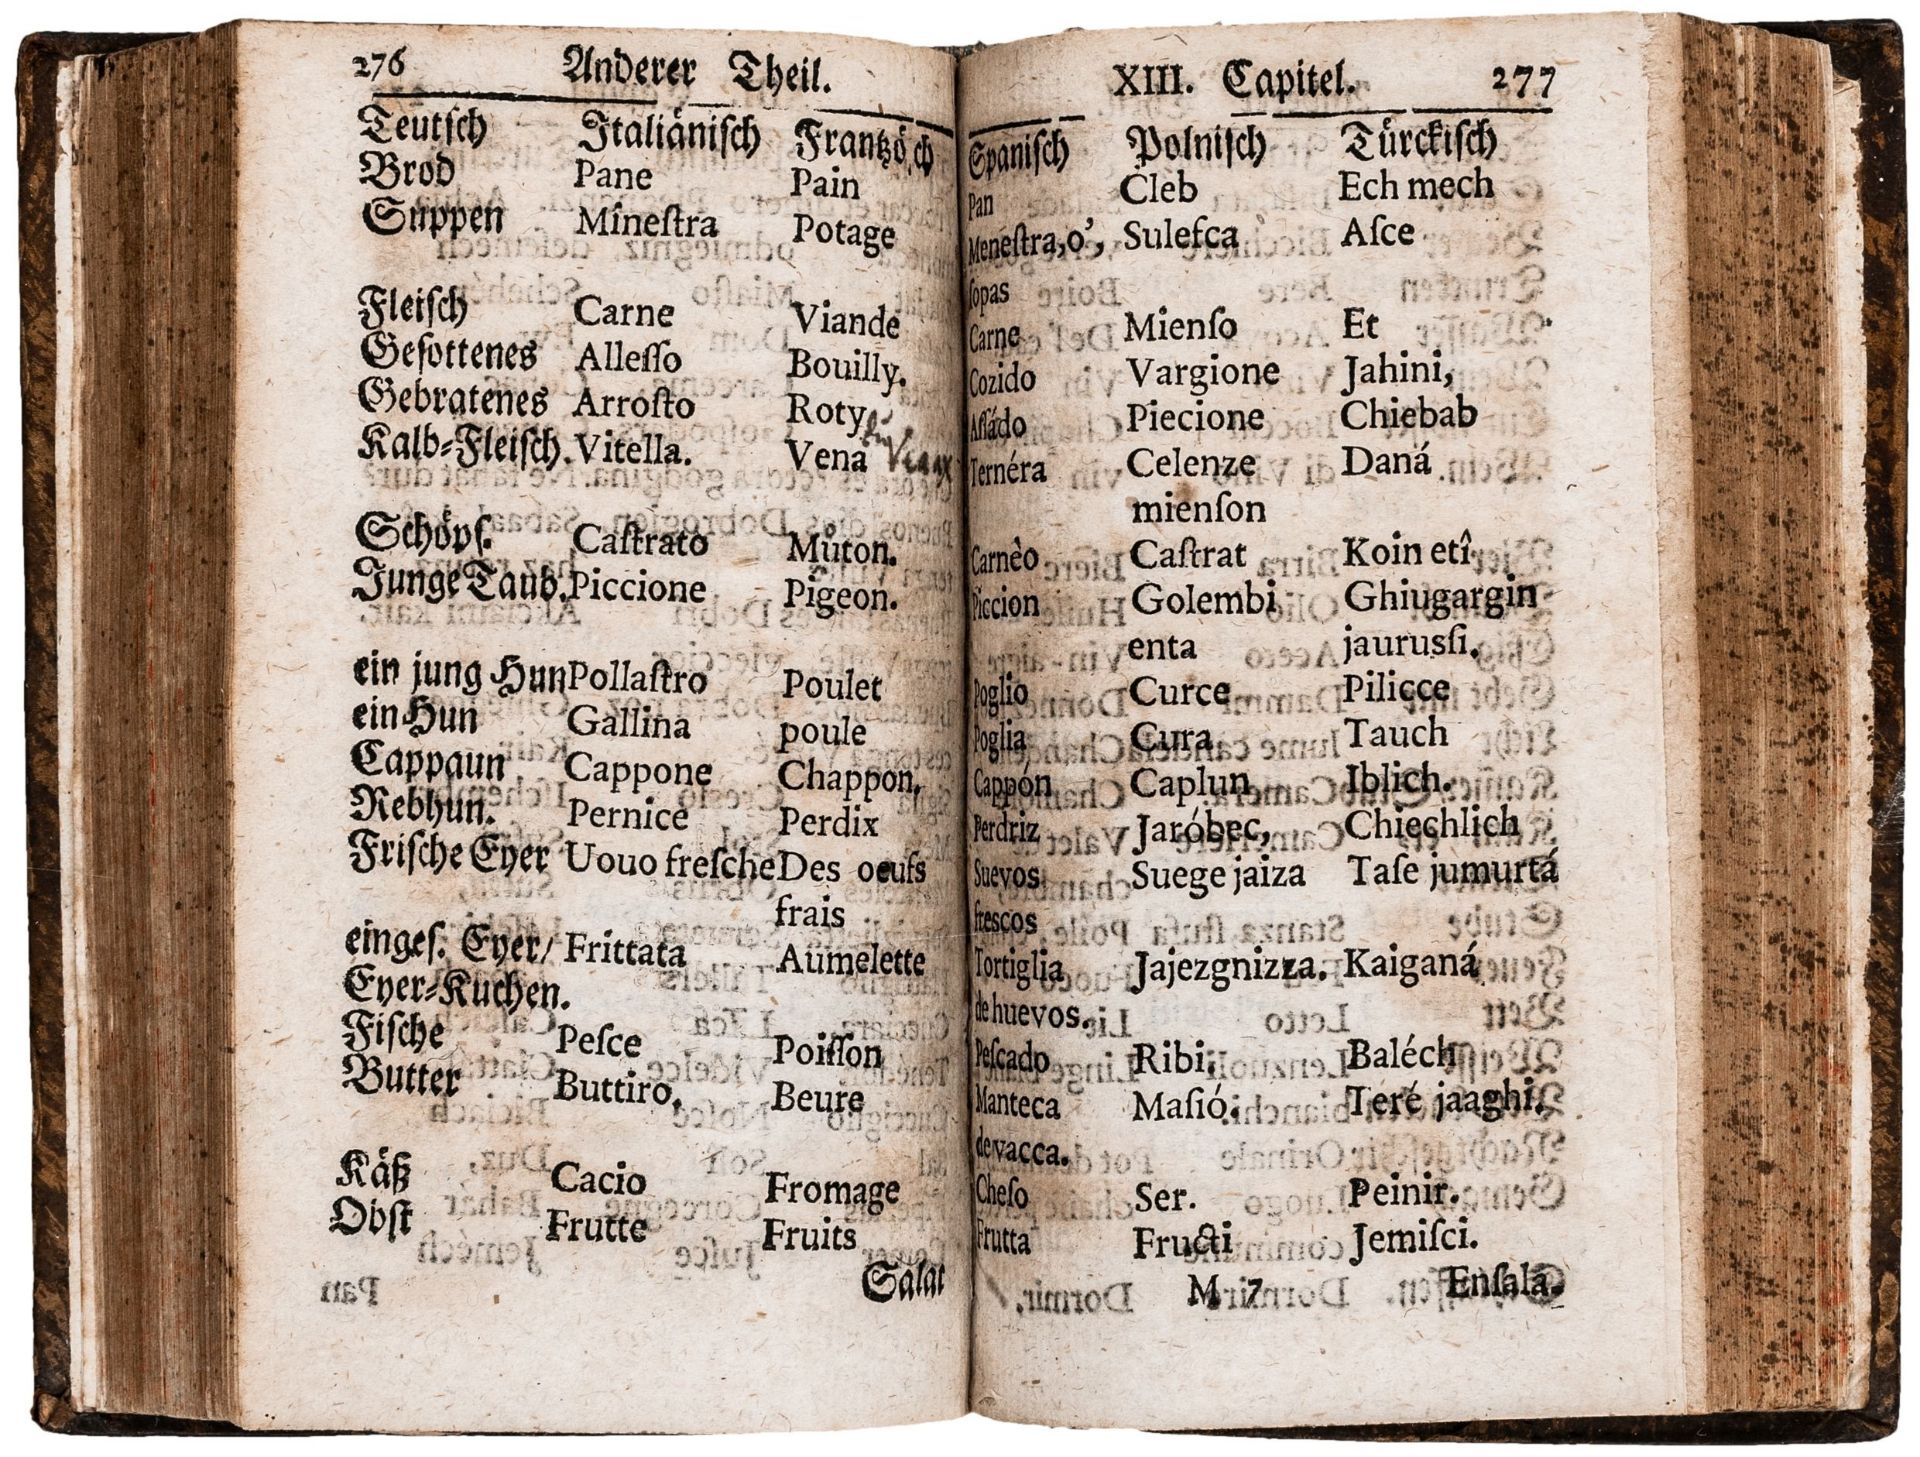 276 Anderer Theil.
Teutſch Italiäniſch Frantzöſch
Brod Pane Pain
Suppen Mîneſtra Potage
Fleiſch Carne Viande
Geſottenes Alleſſo Bouilly.
Gebratenes Arroſto Roty
Kalb-Fleiſch. Vitella. Vena Veaux
Schöpſ. Caſtrato Můton.
Junge Taub. Piccione Pigeon.
ein jung Hun Pollaſtro Poulet
ein Hun Gallina poule
Cappaun Cappone Chappon,
Rebhun. Pernice Perdix
Friſche Eyer Uouo freſche Des oeufs
frais
eingeſ. Eyer/ Frittata Aumelette
Eyer-Kuchen.
Fiſche Peſce Poiſſon
Butter Buttiro. Beure
Käß Cacio Fromage
Obſt Frutte Fruits
Salat
XIII. Capitel. 277
Spaniſch Polniſch Türckiſch
Pan Cleb Ech mech
Meneſtra, o', Sulefca Aſce
ſopas
Carne Mienſo Et
Cozido Vargione Jahini,
Aſſádo Piecione Chiebab
Ternéra Celenze Daná
mienſon
Carnèo Caſtrat Koin etî
Piccion Golembi Ghiugargin
enta jauruſſi.
Poglio Curce Pilicce
Poglia Cura Tauch
Cappón Caplun Iblich.
Perdriz Jaróbec, Chiechlich
Suevos Suege jaiza Taſe jumurtá
freſcos
Tortiglia Jajezgnizza. Kaiganá
de huevos.
Peſcado Ribi, Baléch
Manteca Maſió. Teré jaaghi.
de vacca.
Cheſo Ser. Peinir.
Frutta Fructi Jemiſci.
M 7 Enſala.